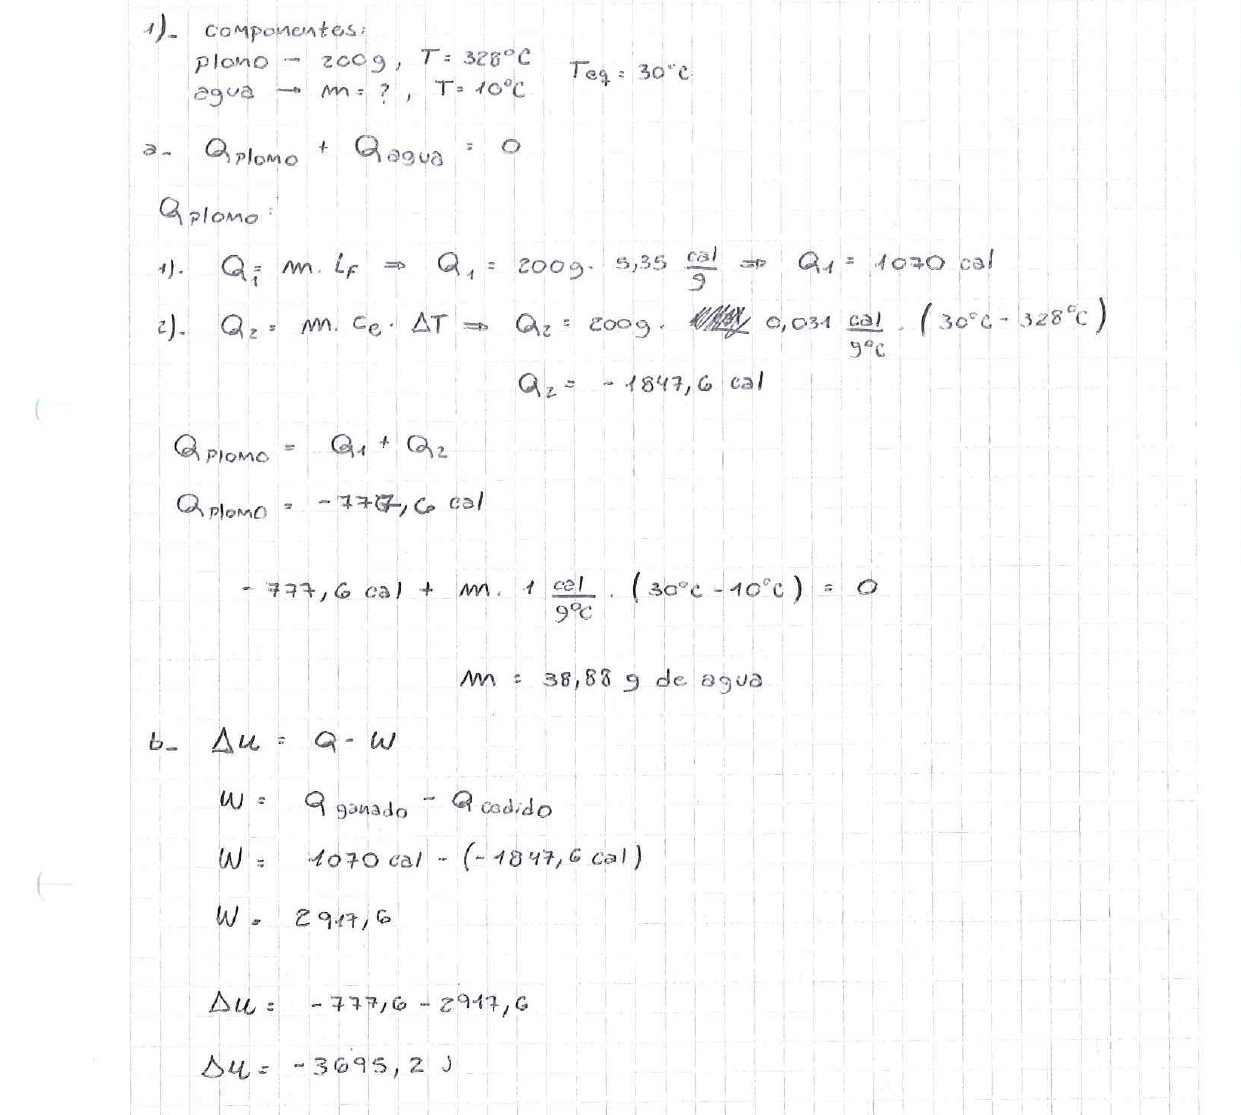 1)- componentes:
plomo - 200g, T = 328°C Teq = 30°C
agua → m = ?, T = 10°C
a- Qplomo + Qagua = 0
Qplomo:
1). Q1 = m. Lf ⇒ Q1 = 200g. 5,35 cal/g ⇒ Q1 = 1070 cal
2). Q2 = m. ce. ΔT ⇒ Q2 = 200g. 0,031 cal/g°C . (30°C - 328°C)
Q2 = - 1847,6 cal
Qplomo = Q1 + Q2
Qplomo = -777,6 cal
- 777,6 cal + m. 1 cal/g°C . (30°C - 10°C) = 0
m = 38,88 g de agua
b- Δu = Q - W
W = Qganado - Qcedido
W = 1070 cal - (-1847,6 cal)
W = 2917,6
Δu = -777,6 - 2917,6
Δu = -3695,2 J